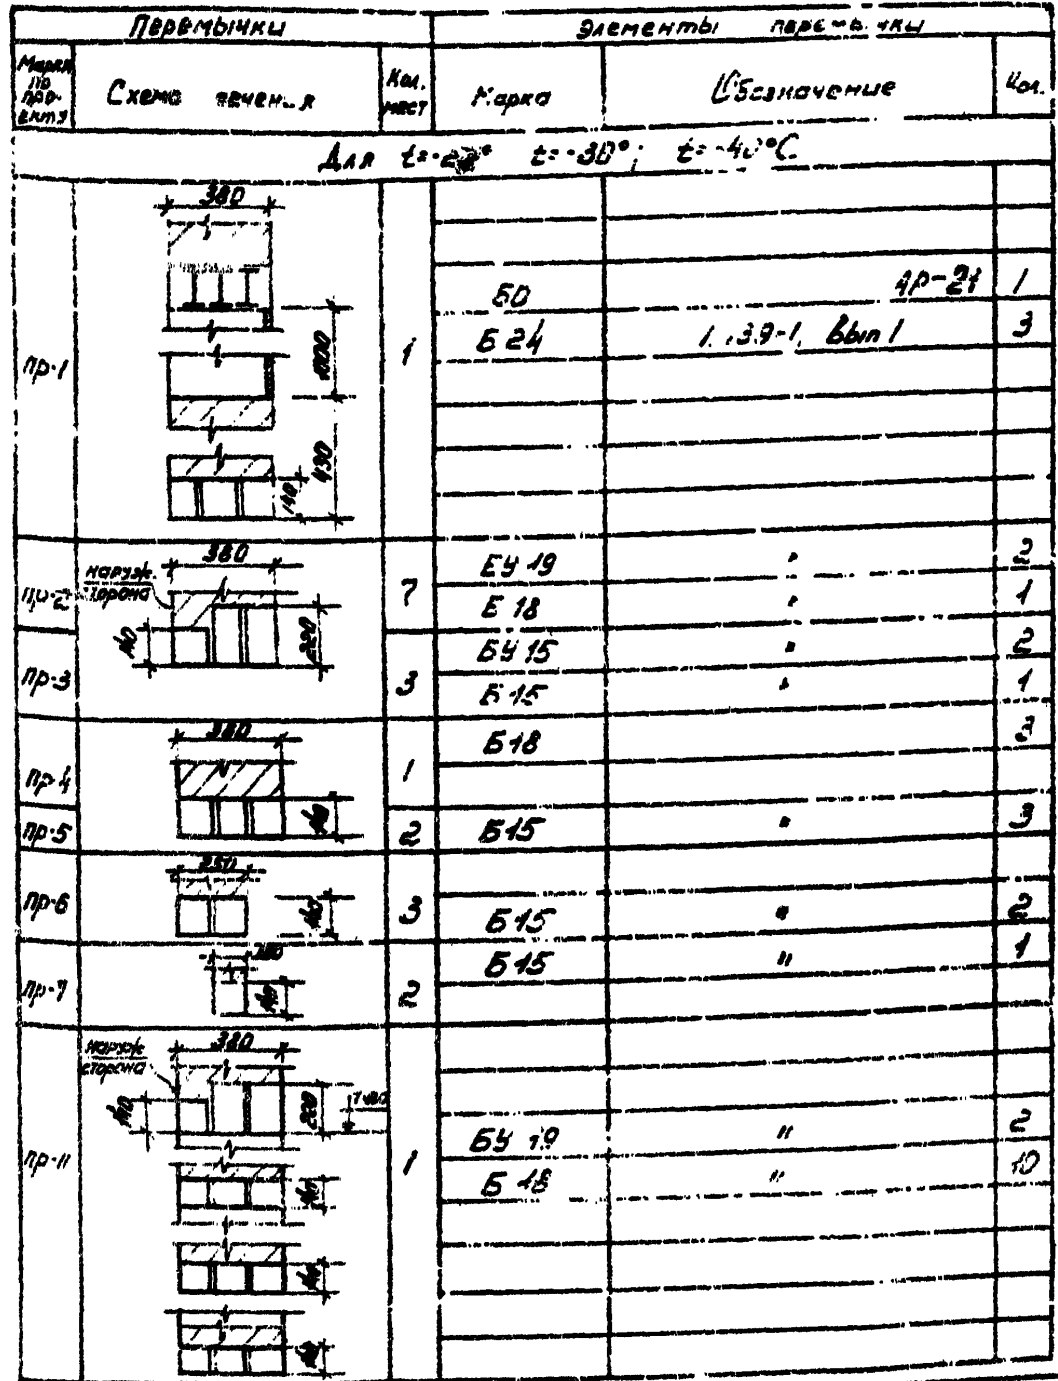 Перемычки
Элементы
Марка по проекту
Схема сечения
Кол. мест
Марка
Обозначение
Кол.
Для t= t=-30°; t=-40°C
Пр-1
380
1000
430
140
1
Б0 АР-21 1
Б24 Вып 1 3
380
наруж. сторона
140
220
7
БУ 19 " 2
Б 18 " 1
Пр-3
3
БУ 15 " 2
Б 15 " 1
Пр-4
380
140
1
Б18 3
Пр-5
2
Б15 " 3
Пр-6
250
140
3
Б15 " 2
Пр-7
140
2
Б15 " 1
Пр-11
наруж сторона
380
140
220
140
140
140
1
БУ 19 " 2
Б 18 " 10